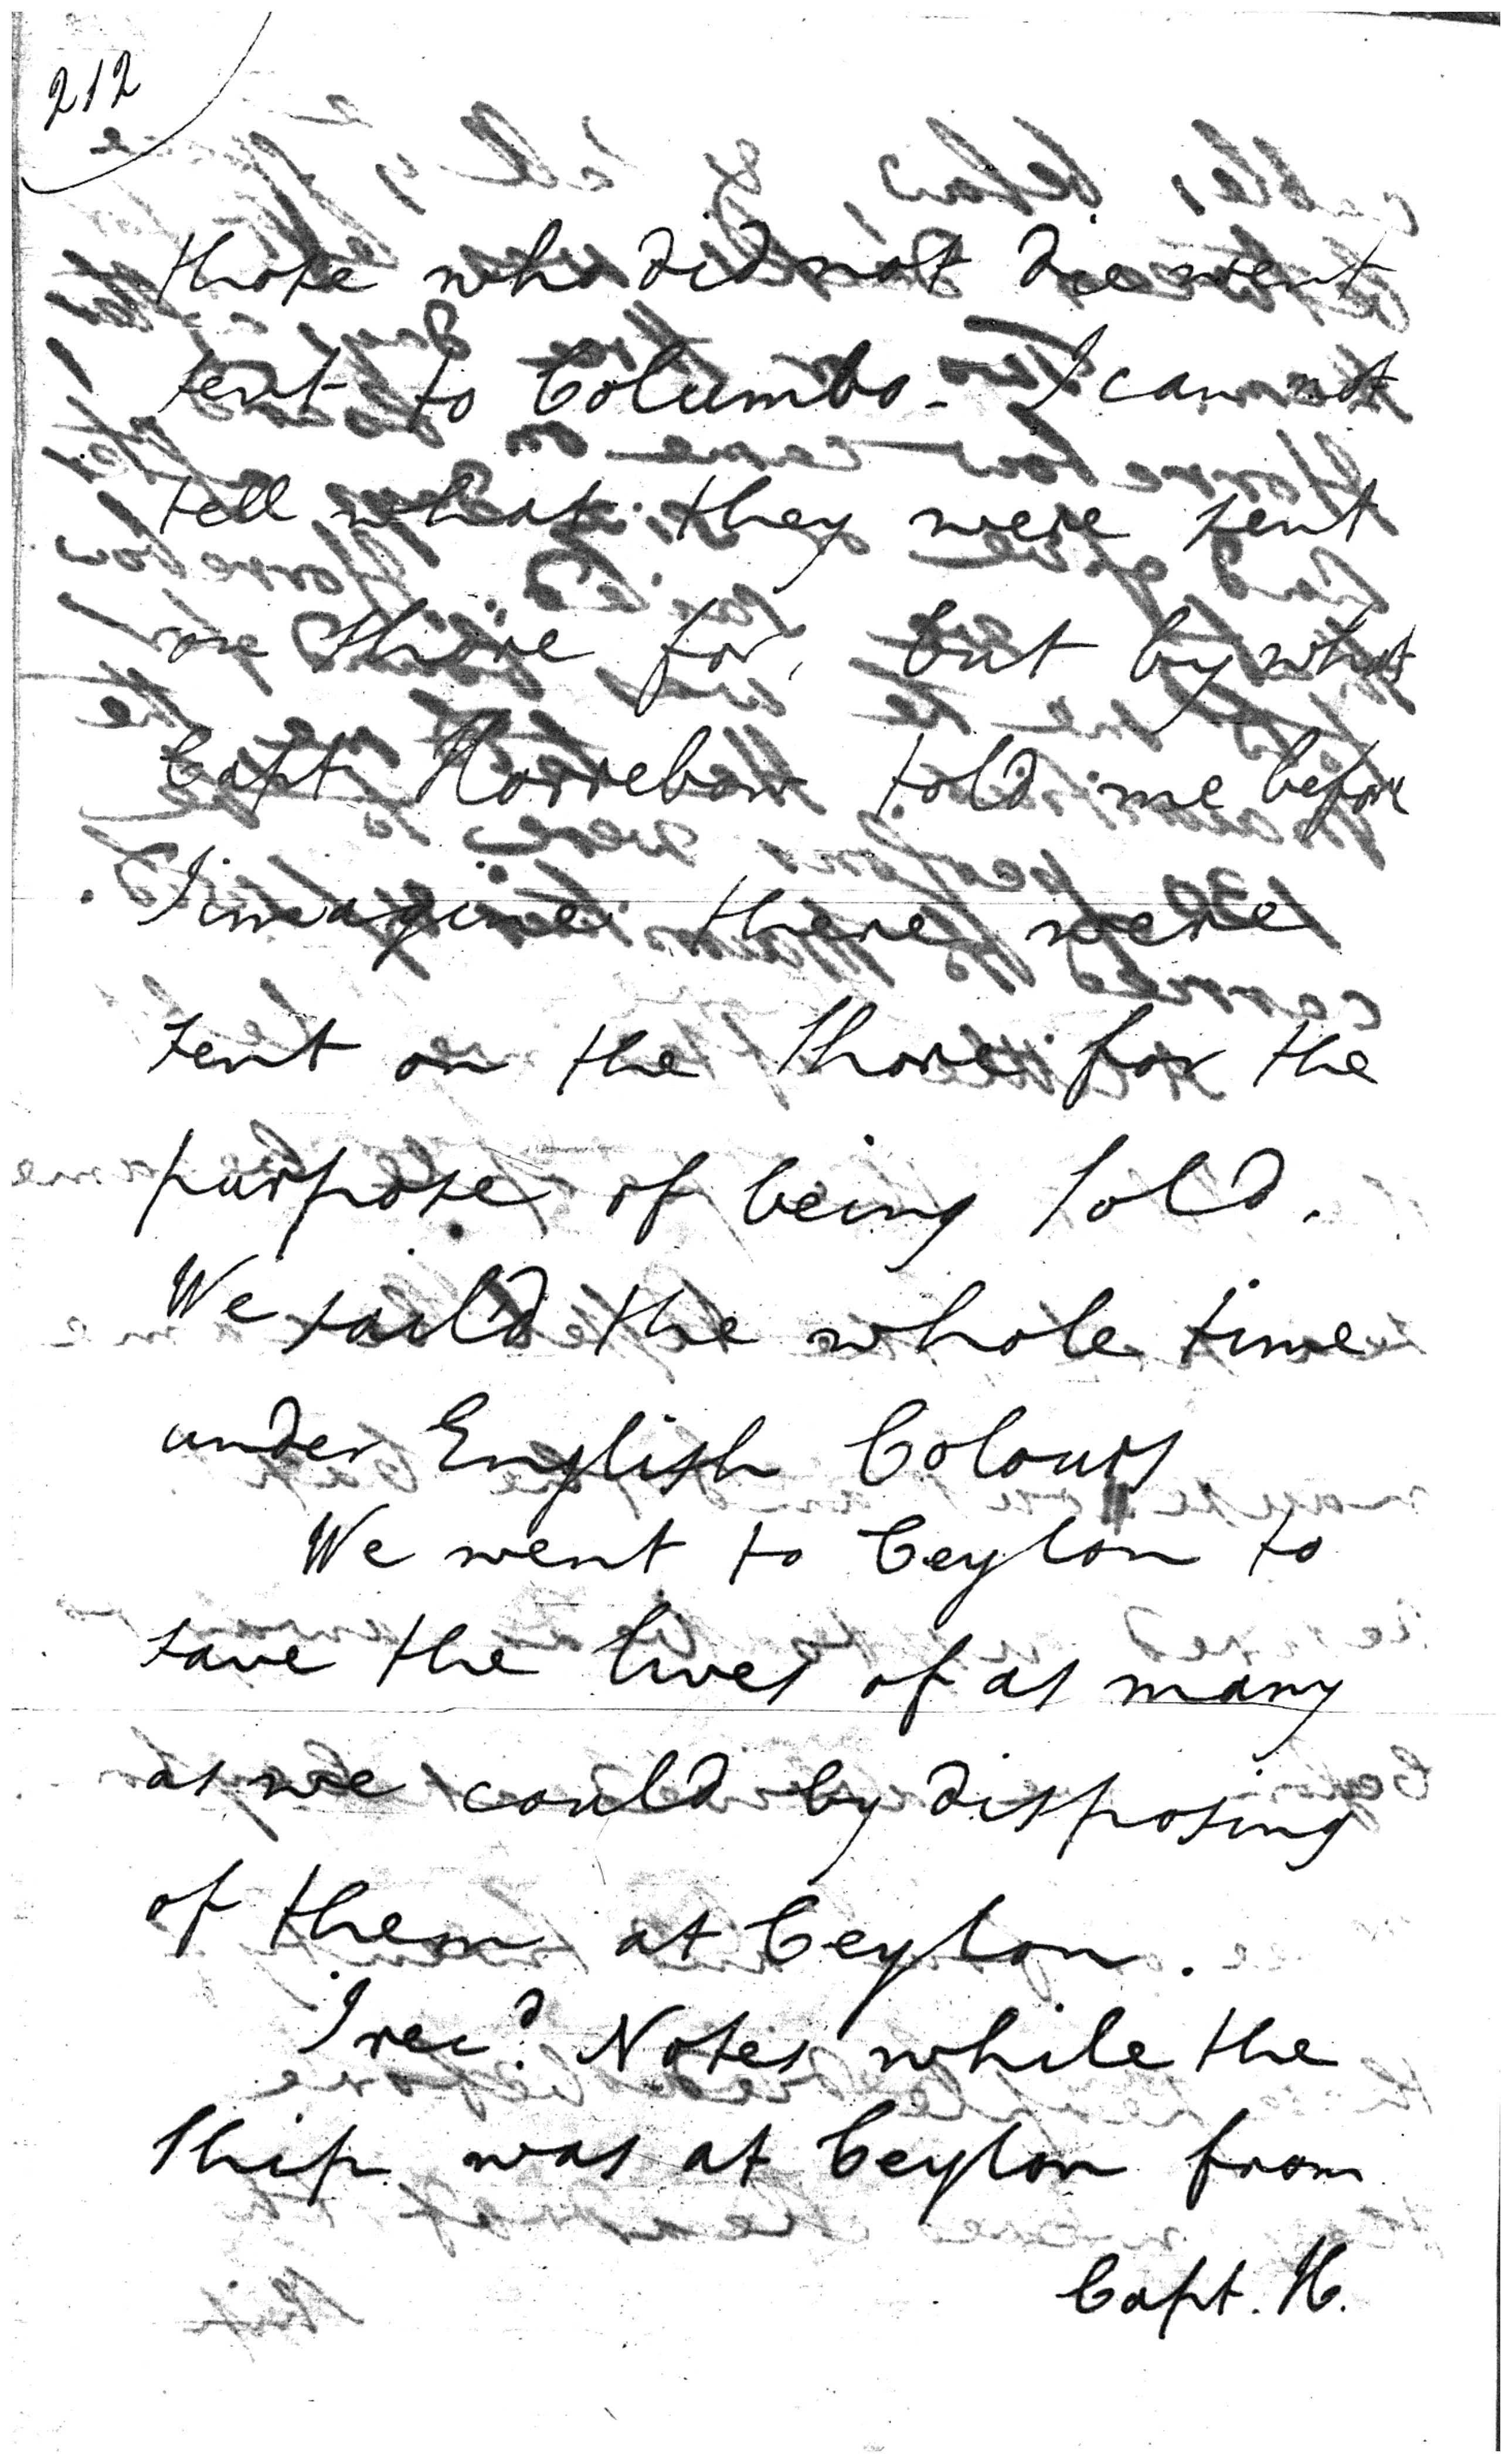 212
those who did not die went
sent to Columbo - I can not
tell what they were sent
on shore for, but by what
Capt. Horrebow told me before
I imagine there were
sent on the Shore for the
purpose of being sold.
We saild the whole time
under English Colours
We went to Ceylon to
save the lives of as many
as we could by disposing
of them at Ceylon.
I recd. Notes while the
Ship was at Ceylon from
Capt. H.